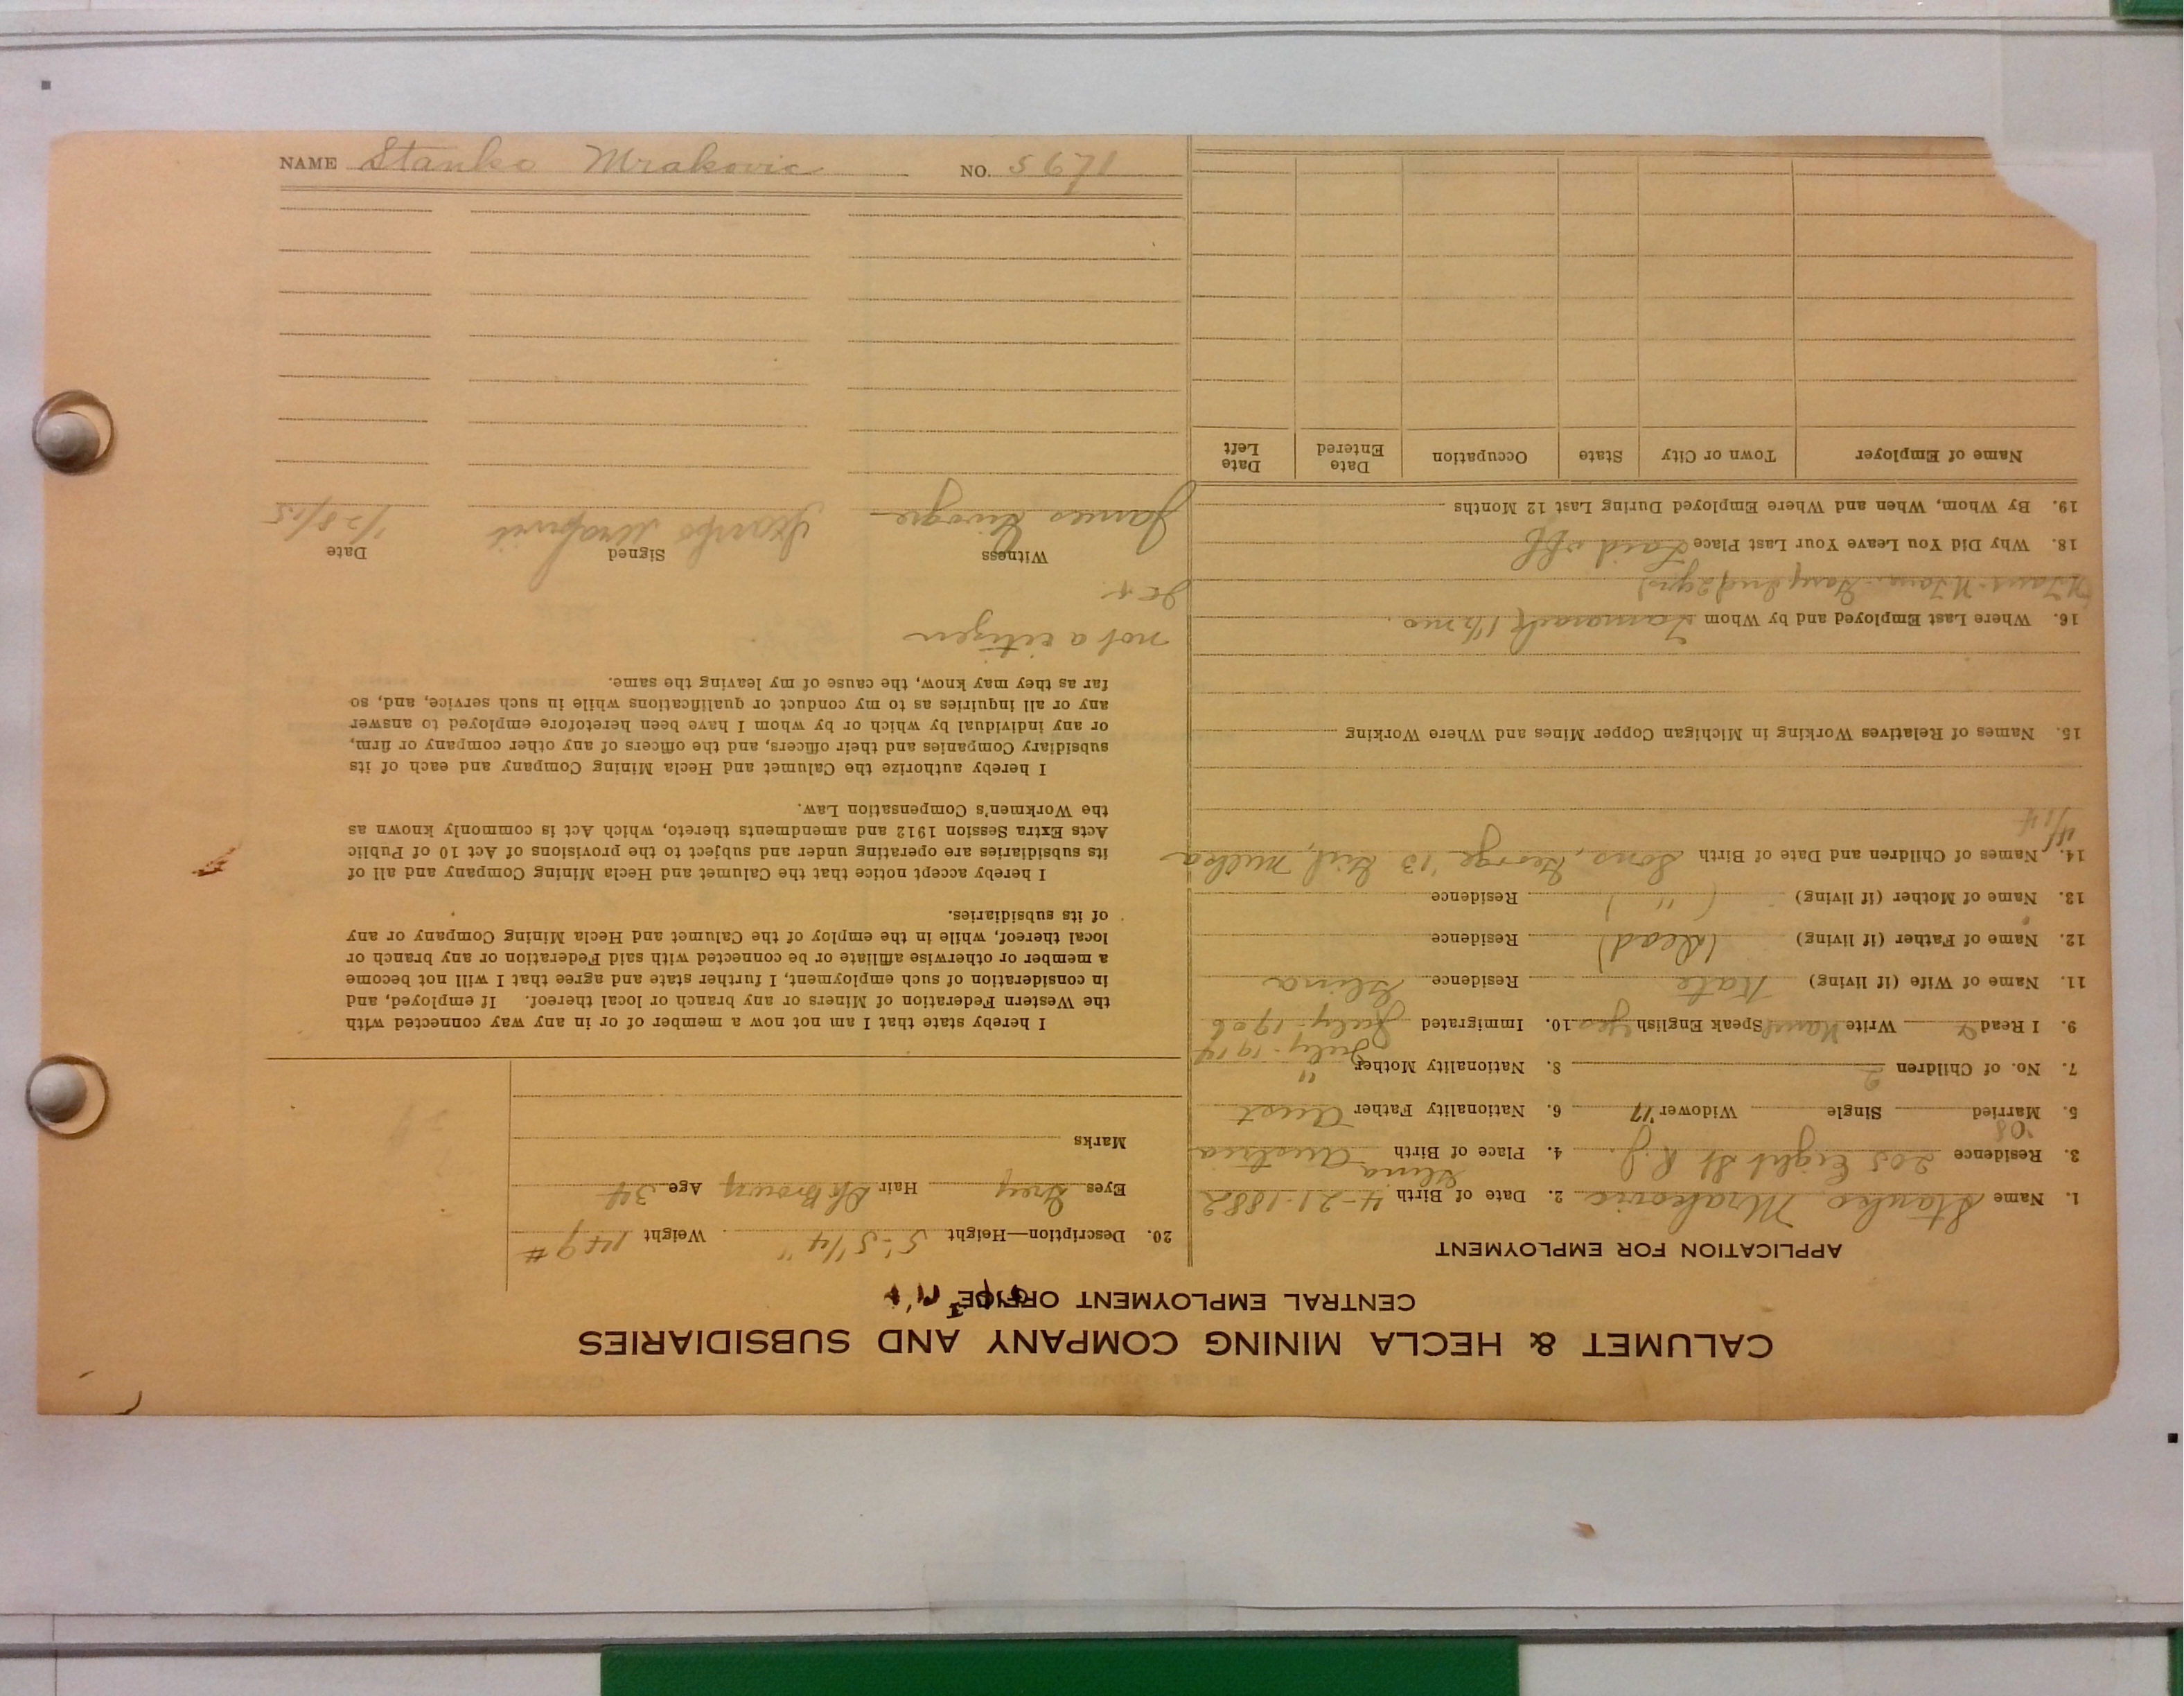 NAME Stanko Mrakovic NO. 5671
CALUMET & HECLA MINING COMPANY AND SUBSIDIARIES
CENTRAL EMPLOYMENT OFFICE
APPLICATION FOR EMPLOYMENT
1. Name Stanko Mrakovic 2. Date of Birth 4-21-1882
3. Residence 205 Eight St R.J. 4. Place of Birth Glina Austria
'08
5. Married Single Widower '17 6. Nationality Father Aust
7. No. of Children 2 8. Nationality Mother "
July-1914
9. I Read Write Name Speak English yes 10. Immigrated July-1906
11. Name of Wife (if living) Kate Residence Glina
12. Name of Father (if living) (Dead) Residence
13. Name of Mother (if living) ( " ) Residence
14. Names of Children and Date of Birth Sons, George '13 Girl, Milka
15. Names of Relatives Working in Michigan Copper Mines and Where Working
16. Where Last Employed and by Whom Tamarack 1 1/2 mo.
18. Why Did You Leave Your Last Place Laid off
19. By Whom, When and Where Employed During Last 12 Months
Name of Employer Town or City State Occupation Date Entered Date Left
20. Description—Height 5'-5 1/4" Weight 149#
Eyes Grey Hair Dk Brown Age 34
Marks
I hereby state that I am not now a member of or in any way connected with
the Western Federation of Miners or any branch or local thereof. If employed, and
in consideration of such employment, I further state and agree that I will not become
a member or otherwise affiliate or be connected with said Federation or any branch or
local thereof, while in the employ of the Calumet and Hecla Mining Company or any
of its subsidiaries.
I hereby accept notice that the Calumet and Hecla Mining Company and all of
its subsidiaries are operating under and subject to the provisions of Act 10 of Public
Acts Extra Session 1912 and amendments thereto, which Act is commonly known as
the Workmen's Compensation Law.
I hereby authorize the Calumet and Hecla Mining Company and each of its
subsidiary Companies and their officers, and the officers of any other company or firm,
or any individual by which or by whom I have been heretofore employed to answer
any or all inquiries as to my conduct or qualifications while in such service, and, so
far as they may know, the cause of my leaving the same.
not a citizen
Witness Signed Date
James